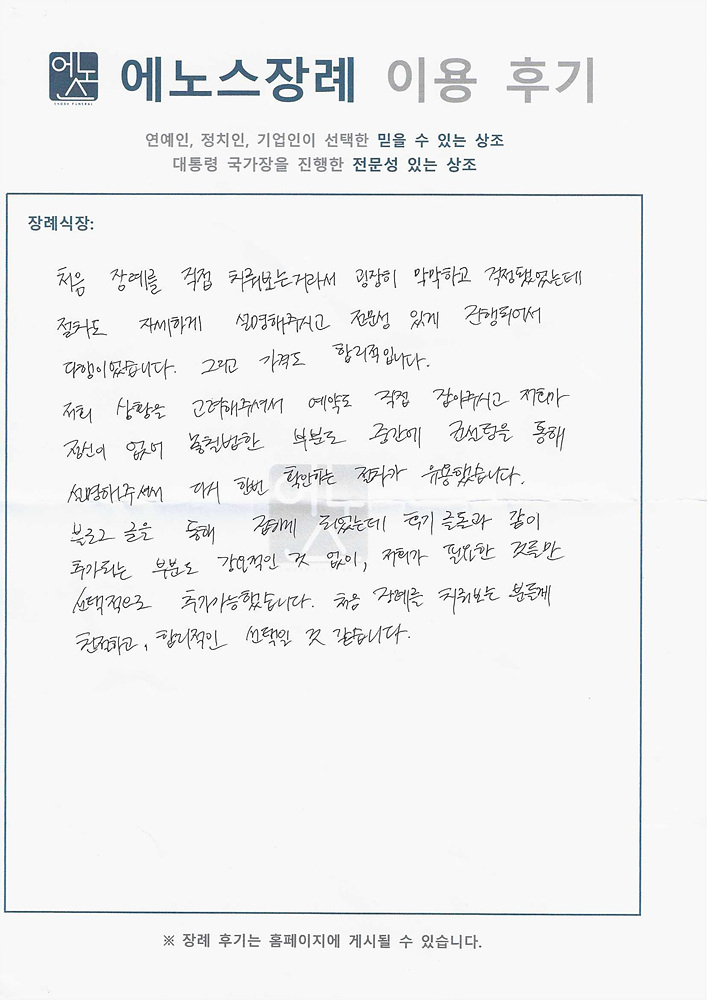 에노스
ENOSE FUNERAL
에노스장례 이용 후기
연예인, 정치인, 기업인이 선택한 믿을 수 있는 상조
대통령 국가장을 진행한 전문성 있는 상조
장례식장:
처음 장예를 직접 치뤄보는거라서 굉장히 막막하고 걱정됐었는데
절차도 자세하게 설명해주시고 전문성 있게 진행되어서
다행이었습니다. 그리고 가격도 합리적입니다.
저희 상황을 고려해주셔서 예약도 직접 잡아주시고 저희가
정신이 없어 놓칠법한 부분도 중간에 컨설팅을 통해
설명해주셔서 다시 한번 확인하는 절차가 유용했습니다.
블로그 글을 통해 접하게 되었는데 후기 글들과 같이
추가되는 부분도 강요적인 것 없이, 저희가 필요한 것들만
선택적으로 추가가능했습니다. 처음 장례를 치뤄보는 분들께
친절하고, 합리적인 선택일 것 같습니다.
※ 장례 후기는 홈페이지에 게시될 수 있습니다.